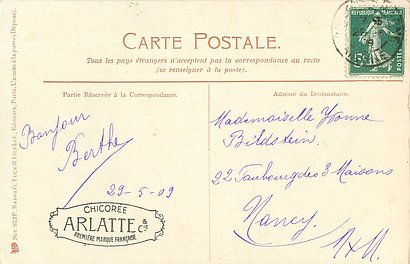 CARTE POSTALE.
Tous les pays étrangers n'acceptent pas la correspondance au recto
(se renseigner à la poste).
Partie Réservée à la Correspondance.
Bonjour
Berthe
29-5-09
CHICORÉE
ARLATTE & Cie
PREMIÈRE MARQUE FRANÇAISE
Adresse du Destinataire.
Mademoiselle Yvonne
Bildstein.
22 Faubourg des 3 Maisons
Nancy.
M & M.
REPUBLIQUE FRANÇAISE
5c
RAPHAEL TUCK & FILS LTD, EDITEURS, PARIS.